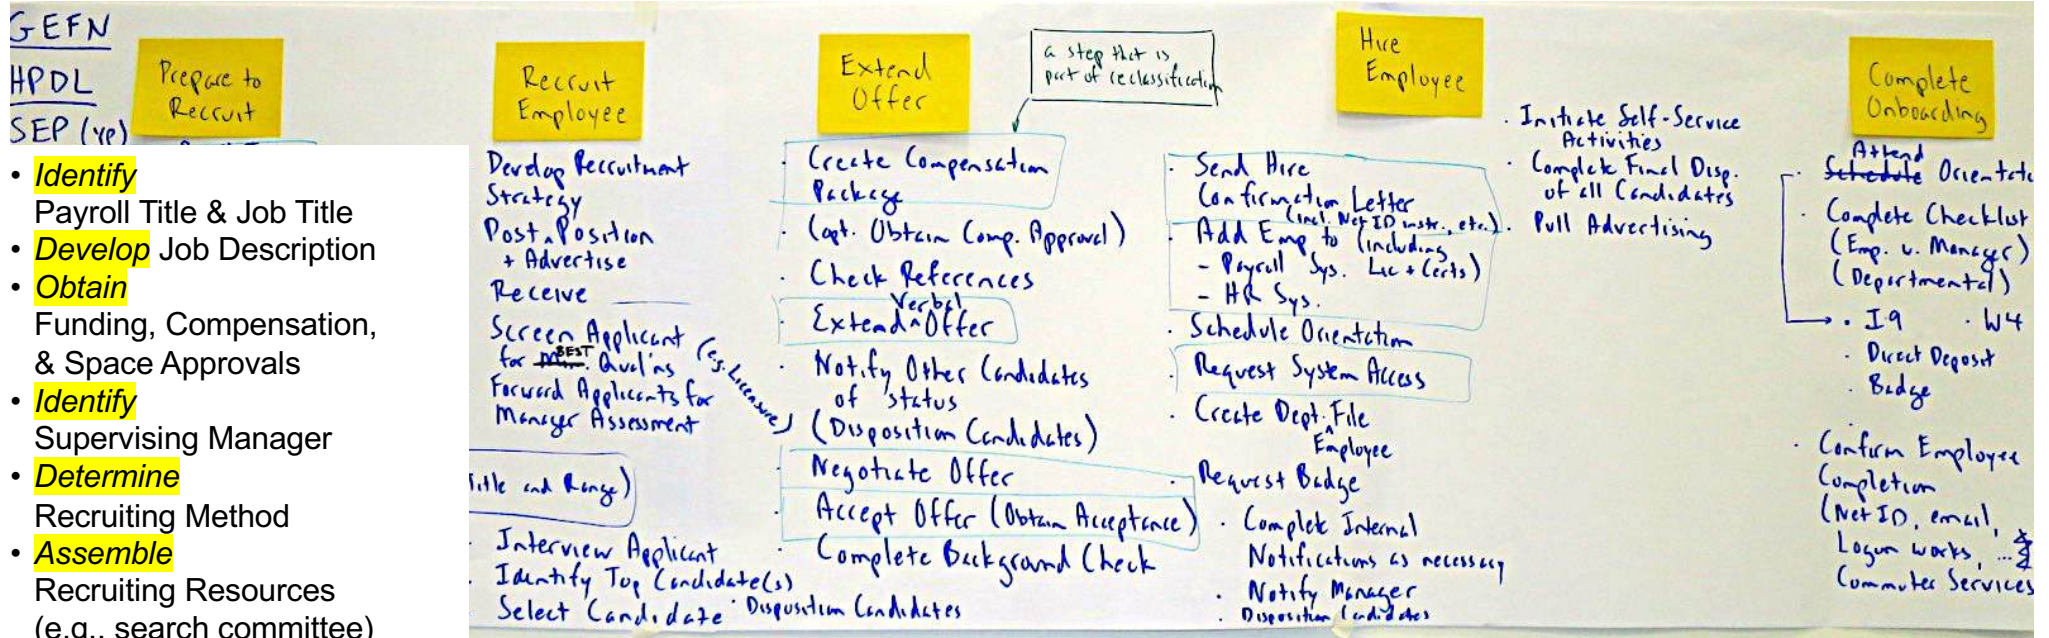 GEFN
HPDL
SEP (yp)
Prepare to
Recruit
• Identify
Payroll Title & Job Title
• Develop Job Description
• Obtain
Funding, Compensation,
& Space Approvals
• Identify
Supervising Manager
• Determine
Recruiting Method
• Assemble
Recruiting Resources
(e.g., search committee)
Recruit
Employee
Develop Recruitment
Strategy
Post Position
+ Advertise
Receive
Screen Applicant
for BEST Qual'ns
(e.g. Licensure)
Forward Applicants for
Manager Assessment
Title and Range)
· Interview Applicant
· Identify Top Candidate(s)
· Select Candidate · Disposition Candidates
Extend
Offer
a step that is
part of reclassification
· Create Compensation
Package
· (opt. Obtain Comp. Approval)
· Check References
· Extend Verbal Offer
· Notify Other Candidates
of status
(Disposition Candidates)
· Negotiate Offer
· Accept Offer (Obtain Acceptance)
· Complete Background Check
Hire
Employee
· Send Hire
Confirmation Letter
(incl. Net ID instr., etc.)
· Add Emp to (including
- Payroll Sys. Lic + Certs)
- HR Sys.
· Schedule Orientation
· Request System Access
· Create Dept. Employee File
· Request Badge
· Complete Internal
Notifications as necessary
· Notify Manager
· Disposition Candidates
· Initiate Self-Service
Activities
· Complete Final Disp.
of all Candidates
· Pull Advertising
Complete
Onboarding
· Attend Schedule Orientate
· Complete Checklist
(Emp. v. Manager)
(Departmental)
· I9 · W4
· Direct Deposit
· Badge
· Confirm Employee
Completion
(Net ID, email,
Logon works, ...
Commuter Services